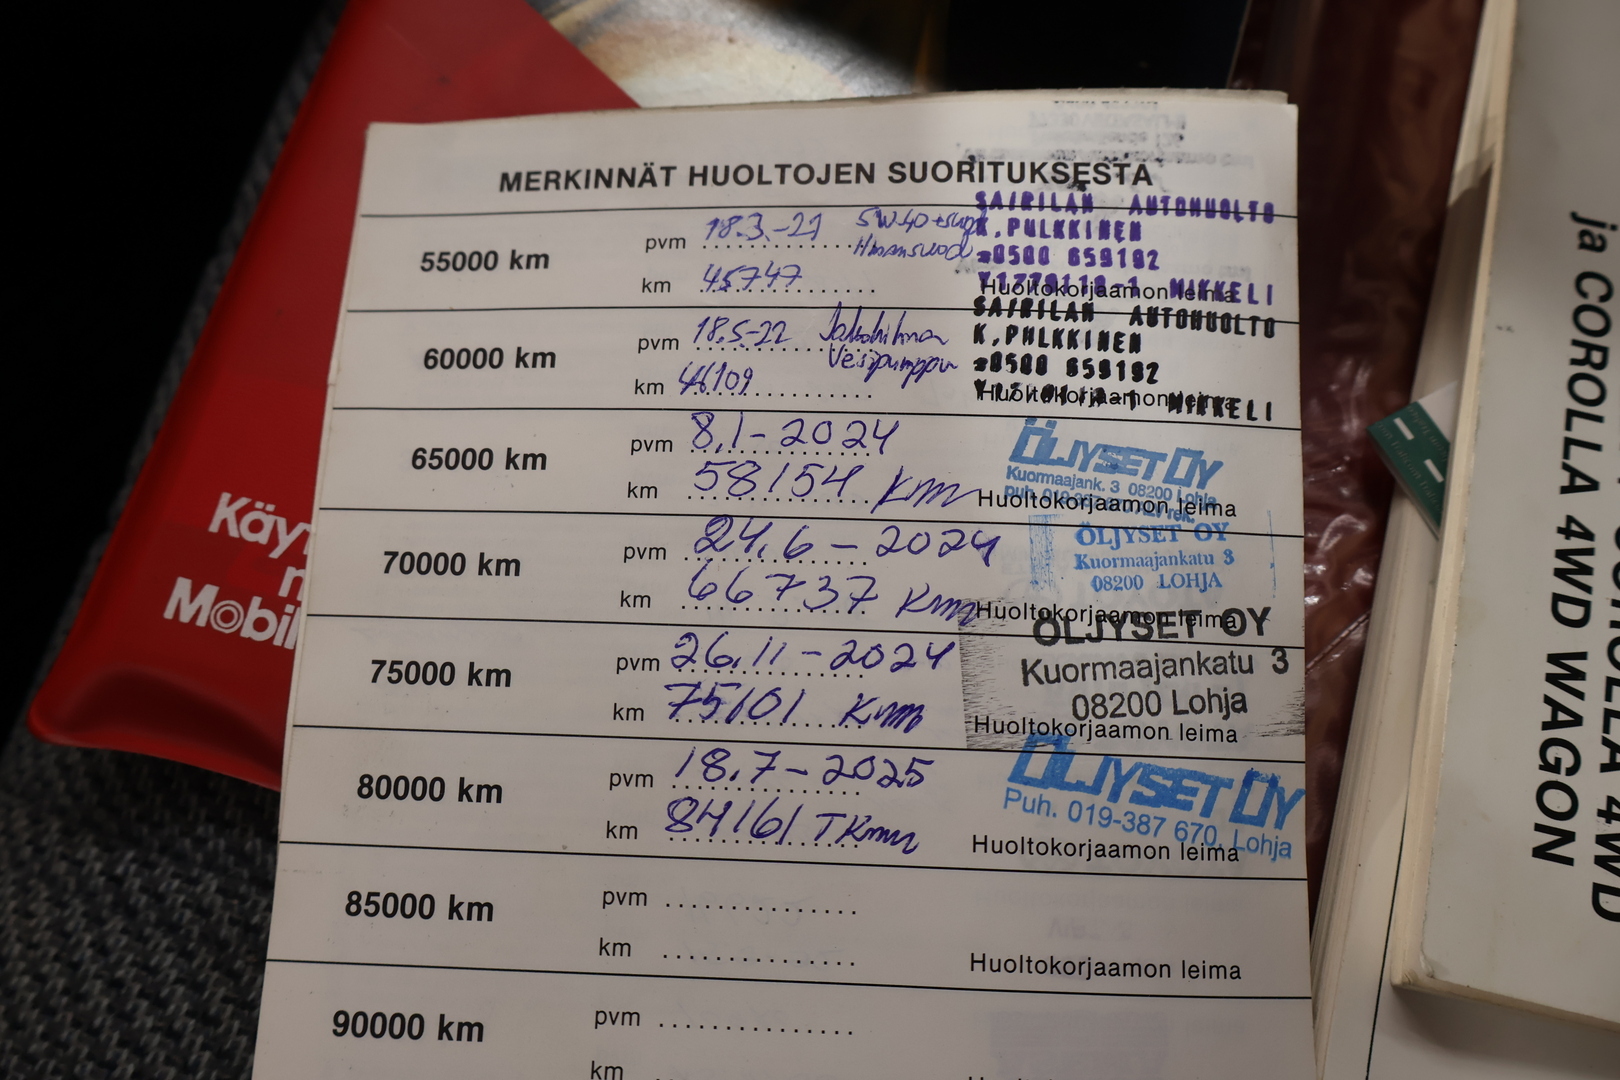 MERKINNÄT HUOLTOJEN SUORITUKSESTA
55000 km
pvm 18.3.-21 5W40+suod
Ilmansuod
km 45747
SAIRILAN AUTOHUOLTO
K.PULKKINEN
0500 659192
MIKKELI
Huoltokorjaamon leima
60000 km
pvm 18.5-22 Jakohihna
Vesipumppu
km 46109
SAIRILAN AUTOHUOLTO
K.PULKKINEN
0500 659192
MIKKELI
Huoltokorjaamon leima
65000 km
pvm 8.1-2024
km 58154 Km
ÖLJYSET OY
Kuormaajank. 3 08200 Lohja
Huoltokorjaamon leima
70000 km
pvm 24.6-2024
km 66737 Km
ÖLJYSET OY
Kuormaajankatu 3
08200 LOHJA
Huoltokorjaamon leima
75000 km
pvm 26.11-2024
km 75101 Km
ÖLJYSET OY
Kuormaajankatu 3
08200 Lohja
Huoltokorjaamon leima
80000 km
pvm 18.7-2025
km 84161 TKm
ÖLJYSET OY
Puh. 019-387 670, Lohja
Huoltokorjaamon leima
85000 km
pvm
km
Huoltokorjaamon leima
90000 km
pvm
km
Käyt
Mobil
ja COROLLA 4WD WAGON
COROLLA 4WD